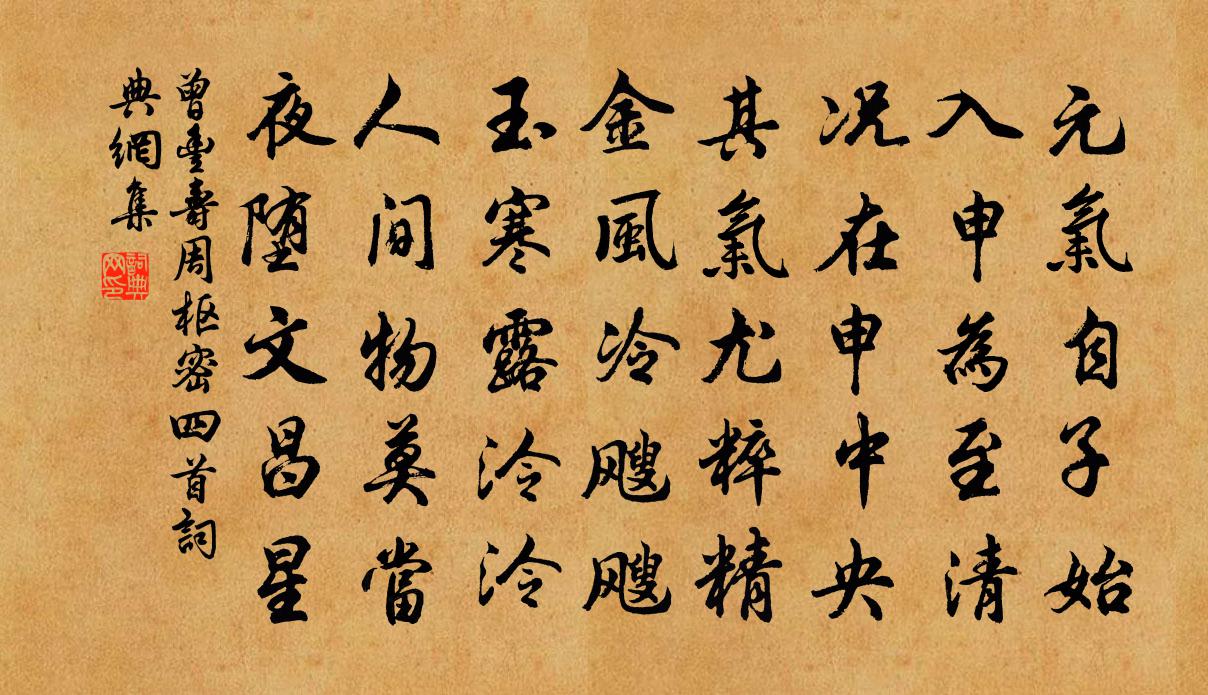 元氣自子始
入申為至清
况在申中央
其氣尤粹精
金風冷飕飕
玉寒露泠泠
人间物莫當
夜堕文昌星
曾豊壽周枢密四首詞
典網集
詞典網印